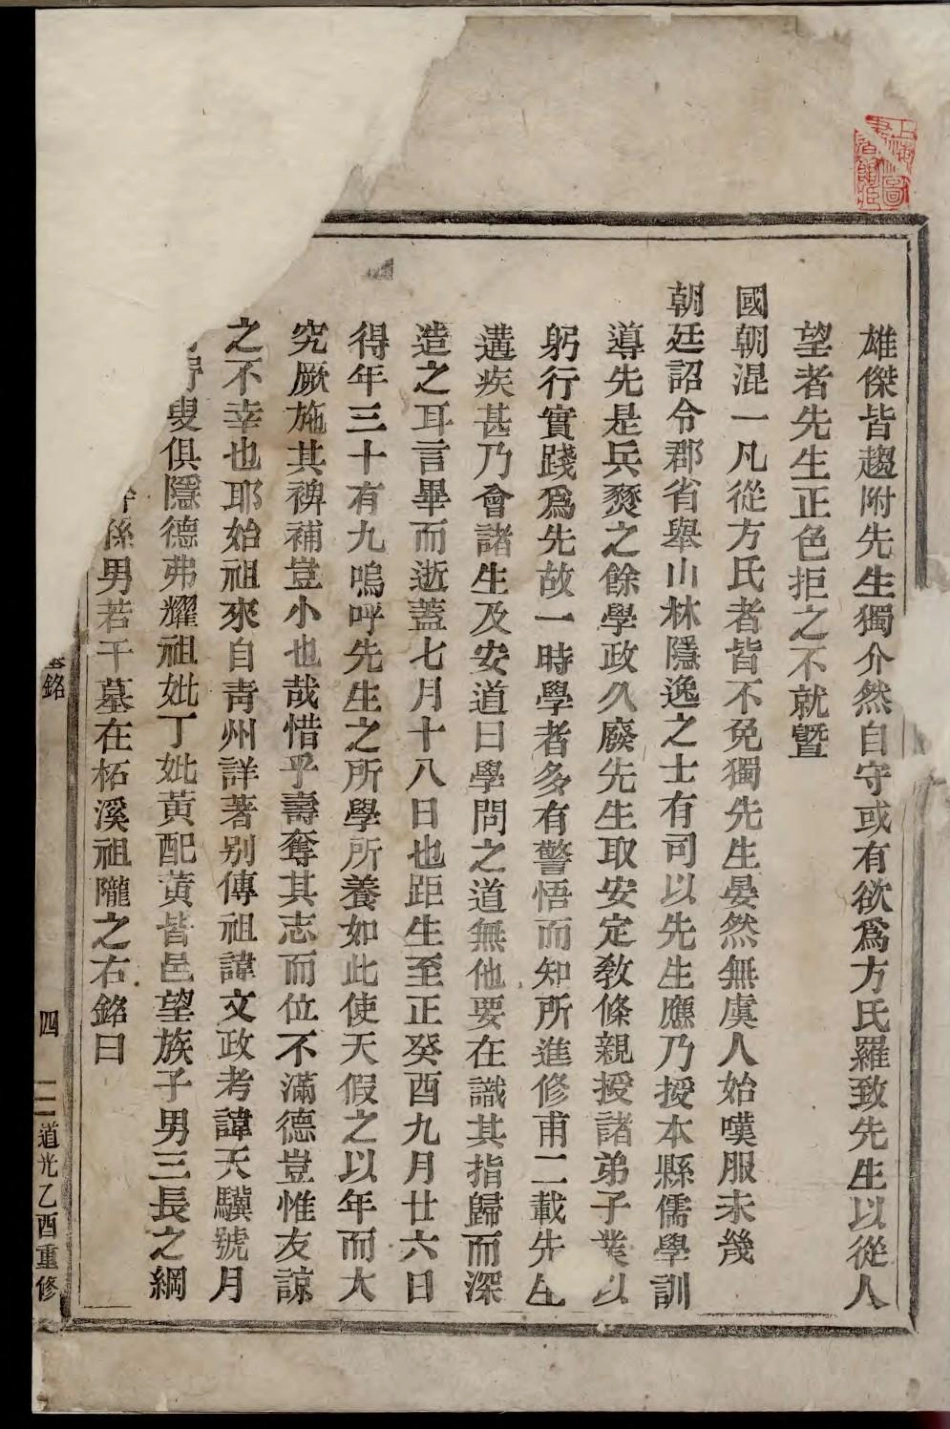 雄傑皆趨附先生獨介然自守或有欲爲方氏羅致先生以從人
望者先生正色拒之不就曁
國朝混一凡從方氏者皆不免獨先生晏然無虞人始嘆服未幾
朝廷詔令郡省舉山林隱逸之士有司以先生應乃授本縣儒學訓
導先是兵燹之餘學政久廢先生取安定敎條親授諸弟子業以
躬行實踐爲先故一時學者多有警悟而知所進修甫二載先生
遘疾甚乃會諸生及安道曰學問之道無他要在識其指歸而深
造之耳言畢而逝蓋七月十八日也距生至正癸酉九月廿六日
得年三十有九嗚呼先生之所學所養如此使天假之以年而大
究厥施其裨補豈小也哉惜乎壽奪其志而位不滿德豈惟友諒
之不幸也耶始祖來自青州詳著别傳祖諱文政考諱天驥號月
叟俱隱德弗耀祖妣丁妣黃配黃皆邑望族子男三長之綱
孫男若干墓在柘溪祖隴之右銘曰
銘
四
道光乙酉重修
上海圖書館藏